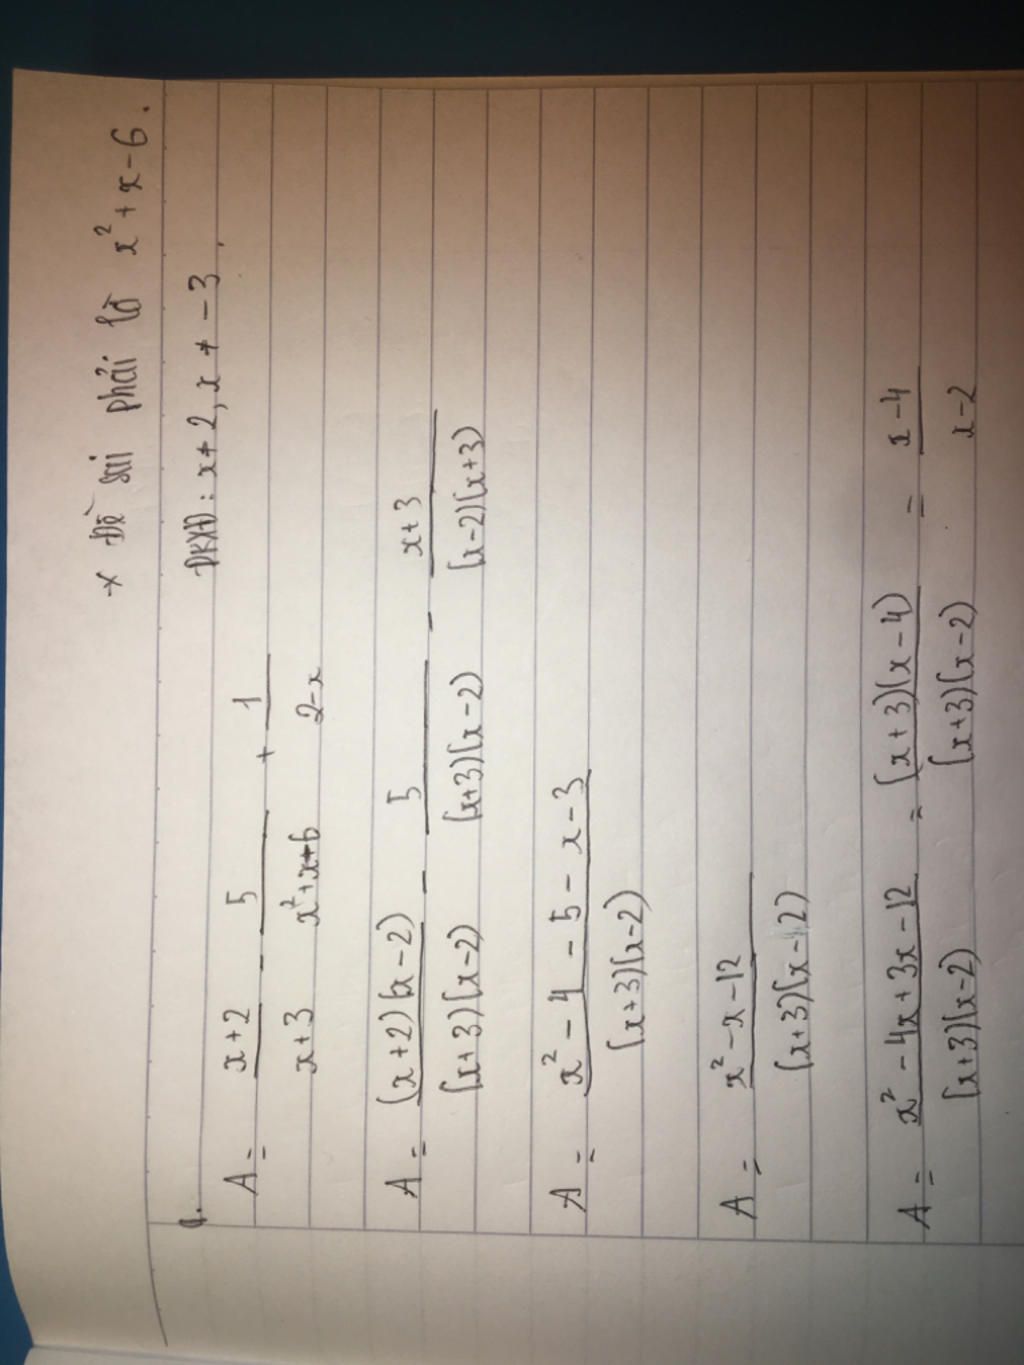 * Đề sai phải là x² + x - 6.
ĐKXĐ: x ≠ 2, x ≠ -3.
a.
A = \frac{x+2}{x+3} - \frac{5}{x²+x+6} + \frac{1}{2-x}
A = \frac{(x+2)(x-2)}{(x+3)(x-2)} - \frac{5}{(x+3)(x-2)} - \frac{x+3}{(x-2)(x+3)}
A = \frac{x² - 4 - 5 - x - 3}{(x+3)(x-2)}
A = \frac{x² - x - 12}{(x+3)(x-2)}
A = \frac{x² - 4x + 3x - 12}{(x+3)(x-2)} = \frac{(x+3)(x-4)}{(x+3)(x-2)} = \frac{x-4}{x-2}